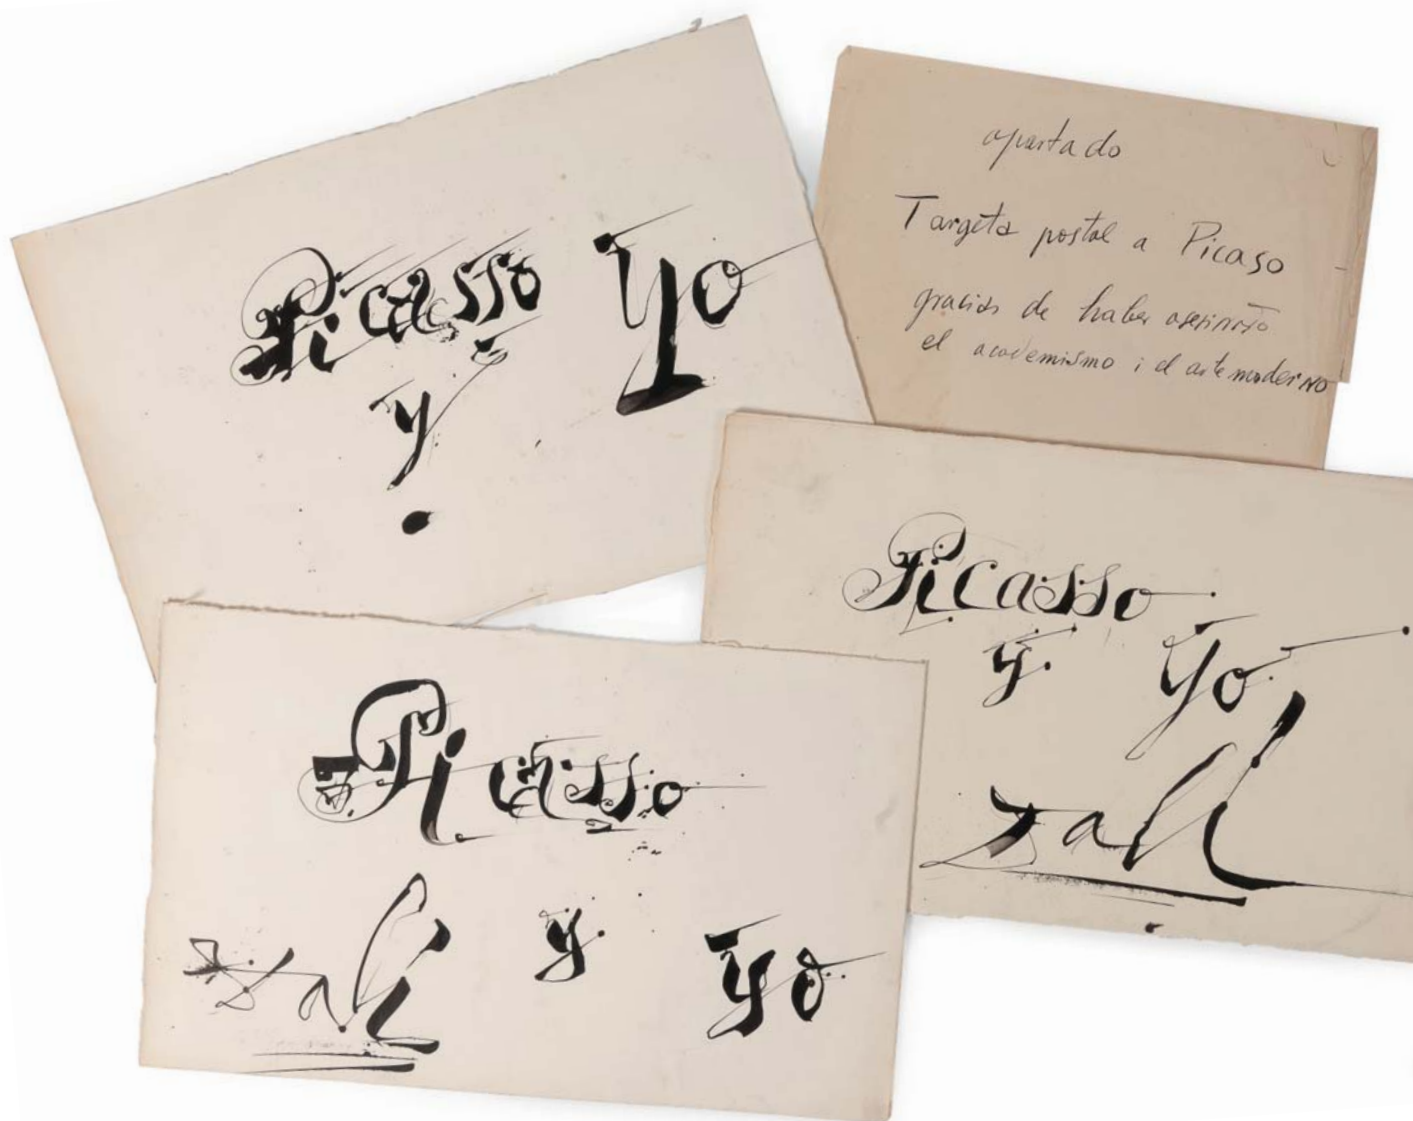 Picasso Yo
y.
apartado
Targeta postal a Picaso
gracias de haber asesinato
el academismo i el arte moderno
Picasso
y. Yo
Dali
Picasso
Dali y. yo